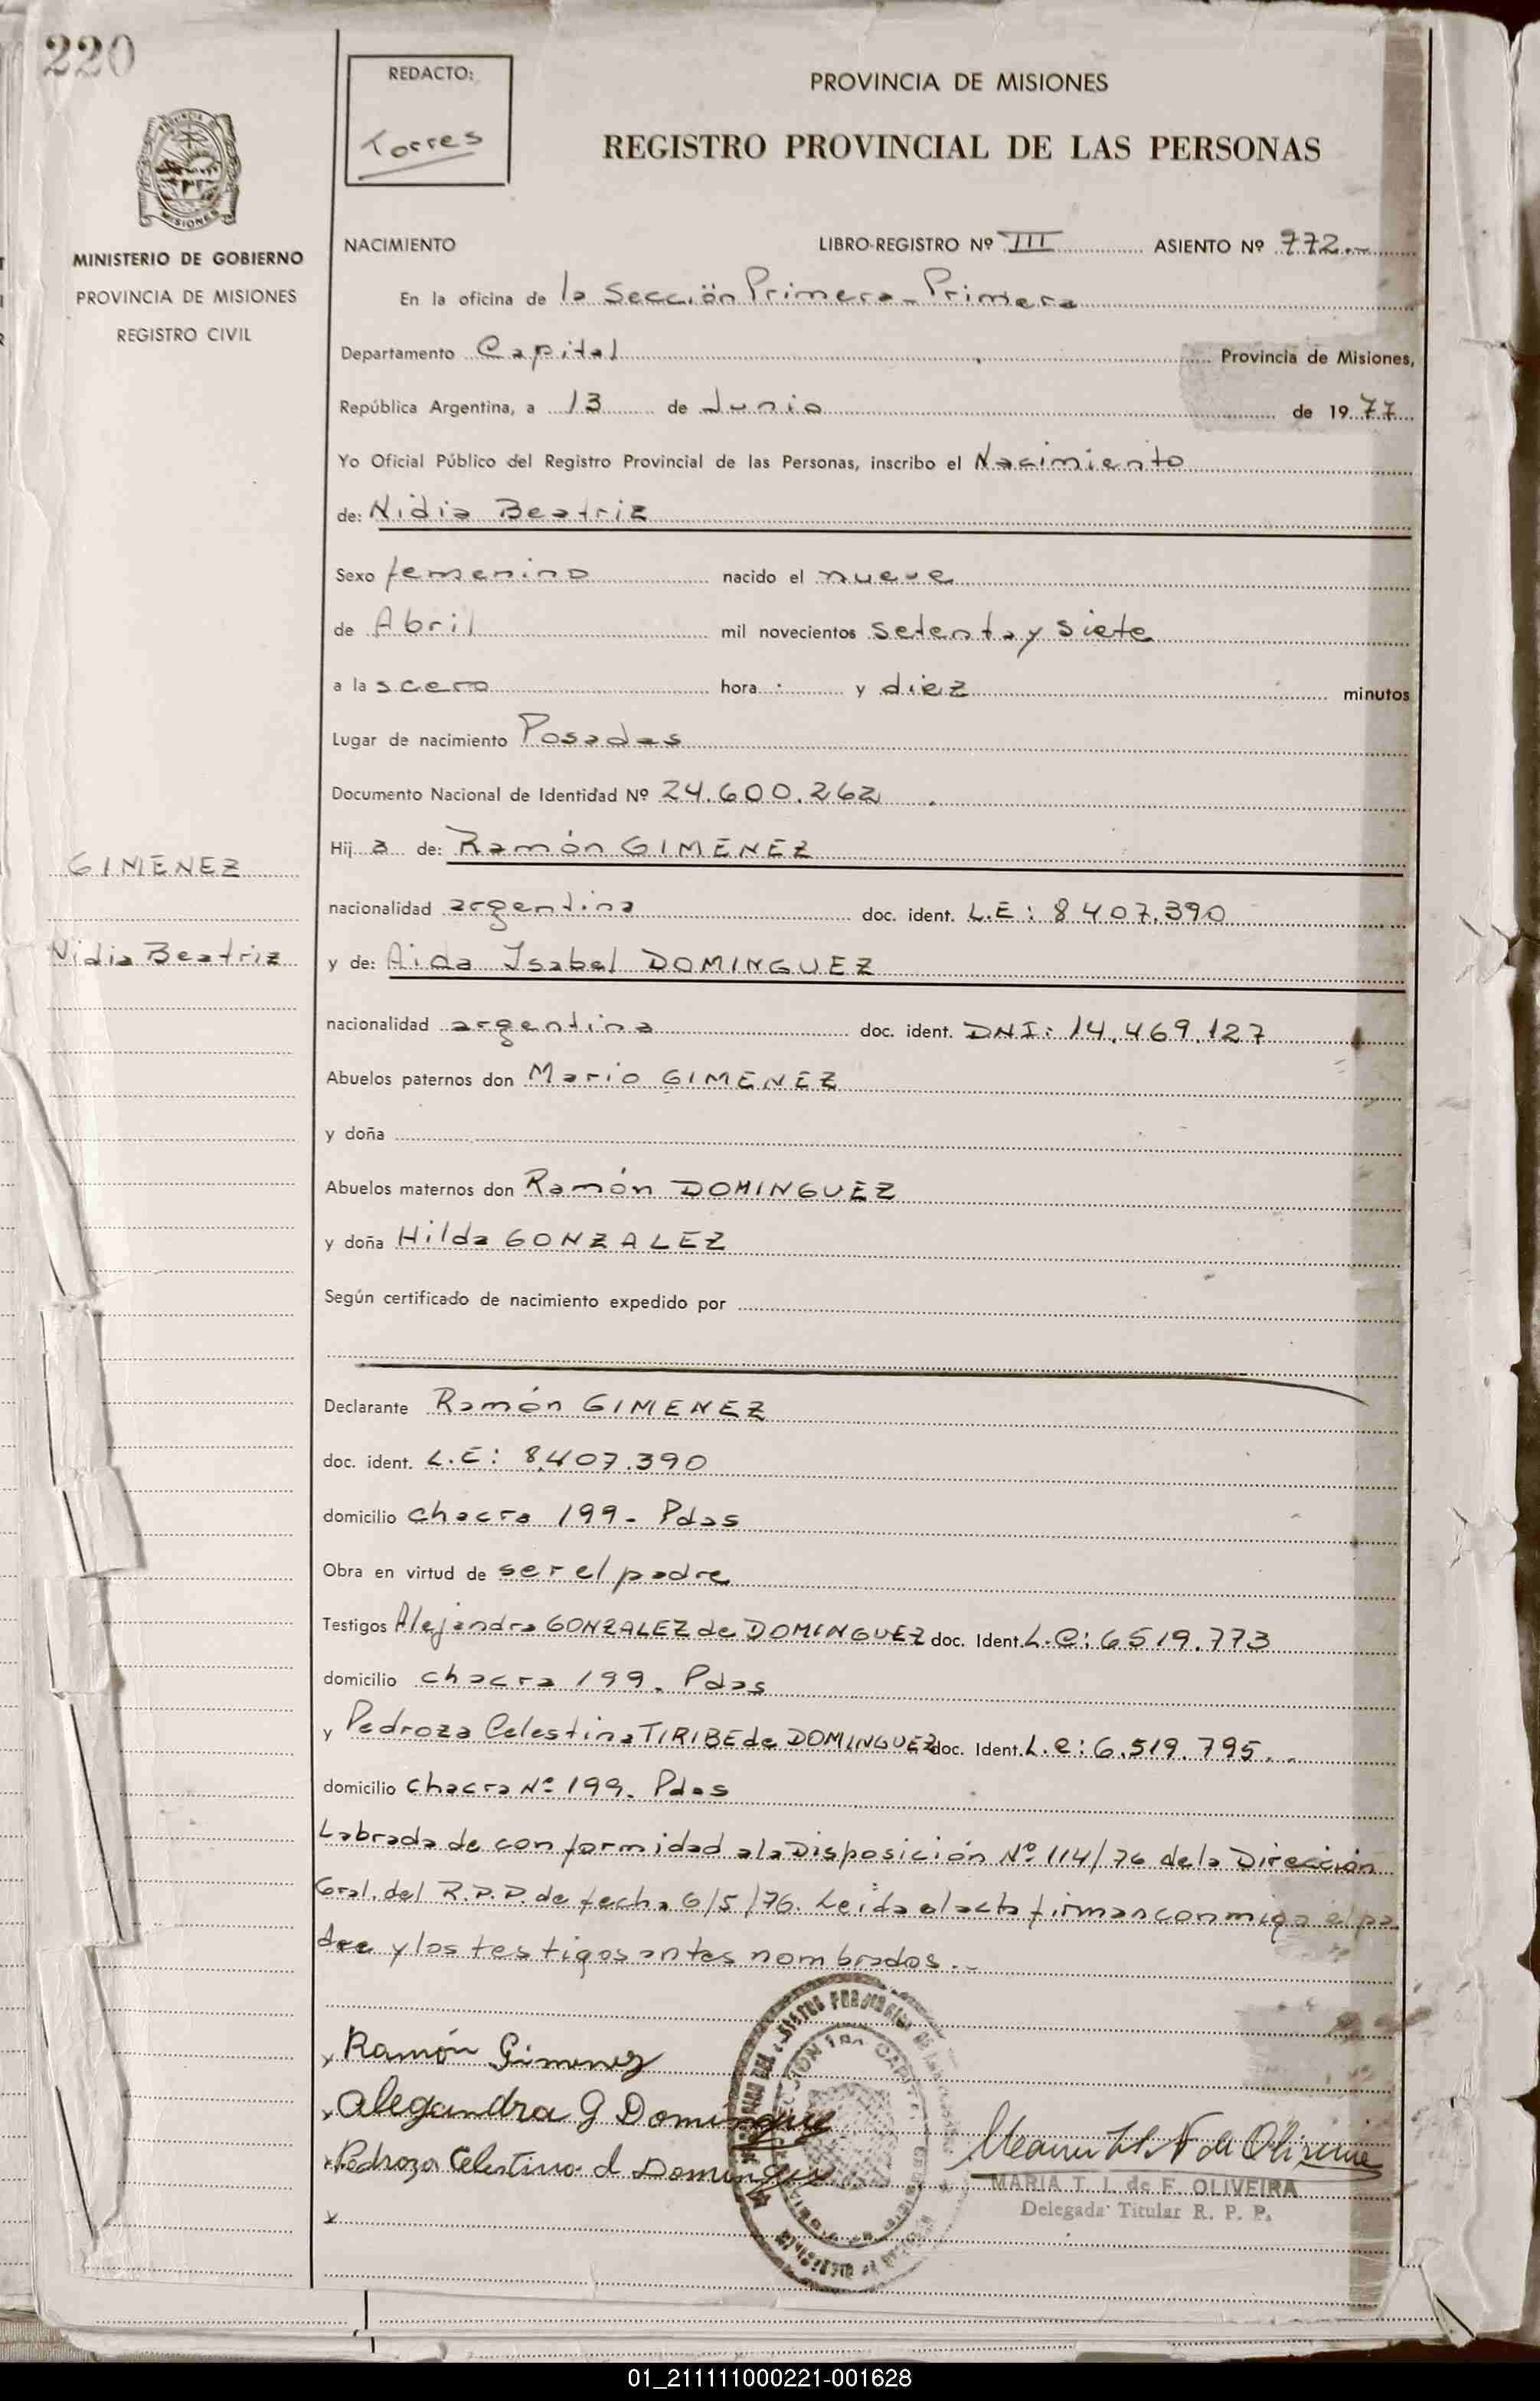 220
REDACTO:
Torres
PROVINCIA DE MISIONES
REGISTRO PROVINCIAL DE LAS PERSONAS
MISIONES
MINISTERIO DE GOBIERNO
PROVINCIA DE MISIONES
REGISTRO CIVIL
NACIMIENTO LIBRO-REGISTRO Nº III ASIENTO Nº 772.
En la oficina de la Sección Primera - Primera
Departamento Capital Provincia de Misiones,
República Argentina, a 13 de Junio de 1977
Yo Oficial Público del Registro Provincial de las Personas, inscribo el Nacimiento
de: Nidia Beatriz
Sexo femenino nacido el nueve
de Abril mil novecientos setenta y siete
a las cero hora y diez minutos
Lugar de nacimiento Posadas
Documento Nacional de Identidad Nº 24.600.262
GIMENEZ
Nidia Beatriz
Hija de: Ramón GIMENEZ
nacionalidad argentina doc. ident. L.E: 8407.390
y de: Aida Isabel DOMINGUEZ
nacionalidad argentina doc. ident. DNI: 14.469.127
Abuelos paternos don Mario GIMENEZ
y doña
Abuelos maternos don Ramón DOMINGUEZ
y doña Hilda GONZALEZ
Según certificado de nacimiento expedido por
Declarante Ramón GIMENEZ
doc. ident. L.E: 8.407.390
domicilio chacra 199- Pdas
Obra en virtud de ser el padre
Testigos Alejandra GONZALEZ de DOMINGUEZ doc. Ident. L.C: 6519.773
domicilio chacra 199. Pdas
y Pedroza Celestina TIRIBE de DOMINGUEZ doc. Ident. L.C: 6.519.795.
domicilio chacra Nº 199. Pdas
Labrada de conformidad a la Disposición Nº 114/76 de la Dirección
Gral. del R.P.P. de fecha 6/5/76. Leida el acta firman conmigo el pa
dre y los testigos antes nombrados.-
x Ramón Gimenez
x Alegandra G Domingue
x Pedroza Celestina d Domingues
x
MARIA T. I. de F. OLIVEIRA
Delegada Titular R. P. P.
01_211111000221-001628